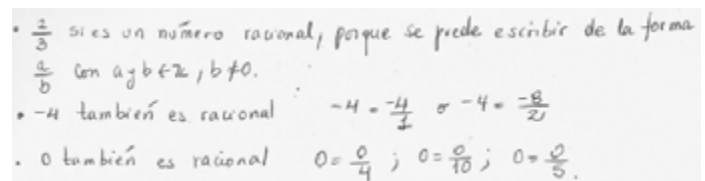 • 2/3 si es un número racional, porque se puede escribir de la forma
a/b con a y b ∈ Z, b ≠ 0.
• -4 también es racional -4 = -4/1 o -4 = -8/2
• 0 también es racional 0 = 0/4 ; 0 = 0/10 ; 0 = 0/5.